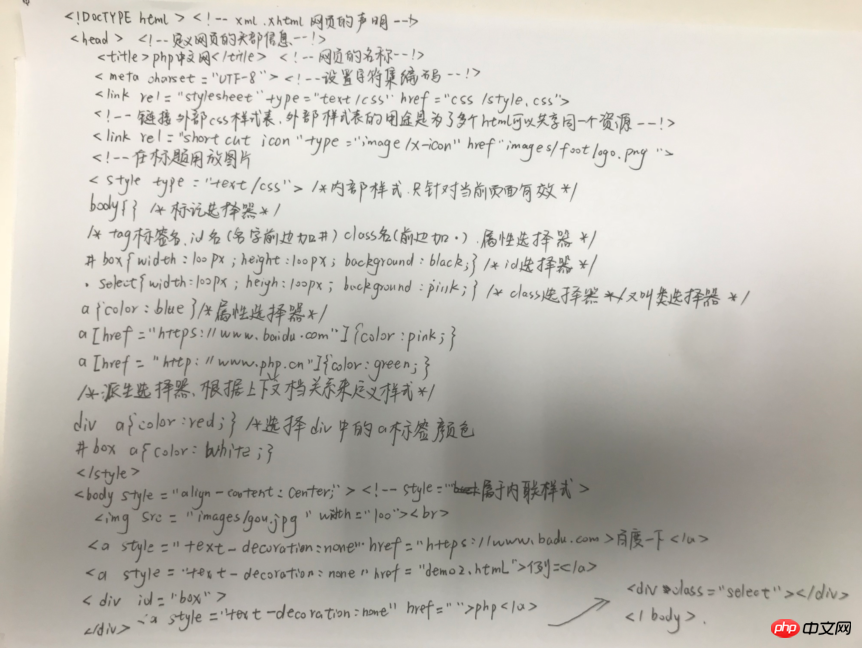 <!DOCTYPE html> <!-- xml.xhtml 网页的声明 --!>
<head> <!--定义网页的头部信息--!>
<title>php中文网</title> <!--网页的名称--!>
<meta charset="UTF-8"> <!--设置字符集编码--!>
<link rel="stylesheet" type="text/css" href="css/style.css">
<!--链接外部css样式表,外部样式表的用途是为了多个html可以共享同一个资源--!>
<link rel="short cut icon" type="image/x-icon" href"images/footlogo.png">
<!--在标题用放图片
<style type="text/css"> /*内部样式.只针对当前页面有效*/
body{} /*标记选择器*/
/*tag标签名.id名(名字前边加#) class名(前边加.).属性选择器*/
#box{width:100px; height:100px; background:black;} /*id选择器*/
.select{width:100px; heigh:100px; background:pink;} /*class选择器*/又叫类选择器 */
a{color:blue}/*属性选择器*/
a[href="https://www.baidu.com"]{color:pink;}
a[href="http://www.php.cn"]{color:green;}
/*派生选择器.根据上下文档关系来定义样式*/
div a{color:red;} /*选择div中的a标签颜色
#box a{color:white;}
</style>
<body style="align-content:center;"> <!-- style="属于内联样式>
<img src="images/gou.jpg" width="100"><br>
<a style="text-decoration:none" href="https://www.badu.com>百度一下</a>
<a style="text-decoration:none" href="demo2.html">例二</a>
<div id="box">
<a style="text-decoration:none" href="">php</a>
</div>
<div class="select"></div>
</body>.
php中文网